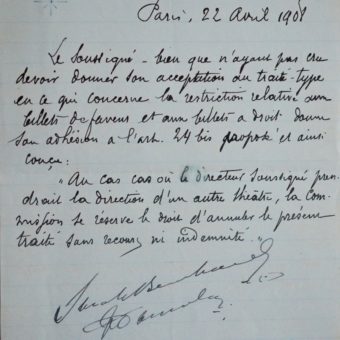 Paris, 22 Avril 1908
Le Soussigné - bien que n'ayant pas cru
devoir donner son acceptation au traité-type
en ce qui concerne la restriction relative aux
billets de faveur et aux billets a droit donne
son adhésion a l'art. 24 bis proposé et ainsi
conçu:
"Au cas cas où le directeur soussigné pren-
drait la direction d'un autre théâtre, la com-
mission se réserve le droit d'annuler le présent
traité sans recours ni indemnité."
Sarah Bernhardt